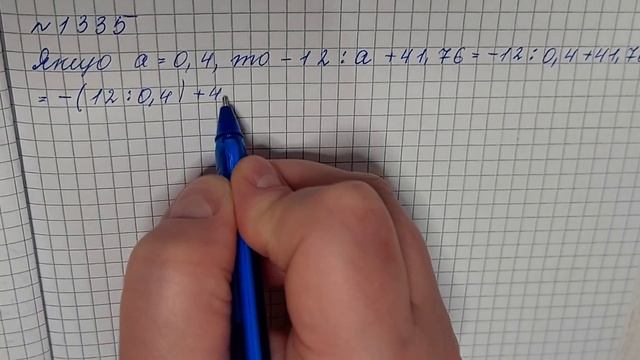 №1335
Якщо a = 0,4, то -12 : a + 41,76 = -12 : 0,4 + 41,76
= -(12 : 0,4) + 4